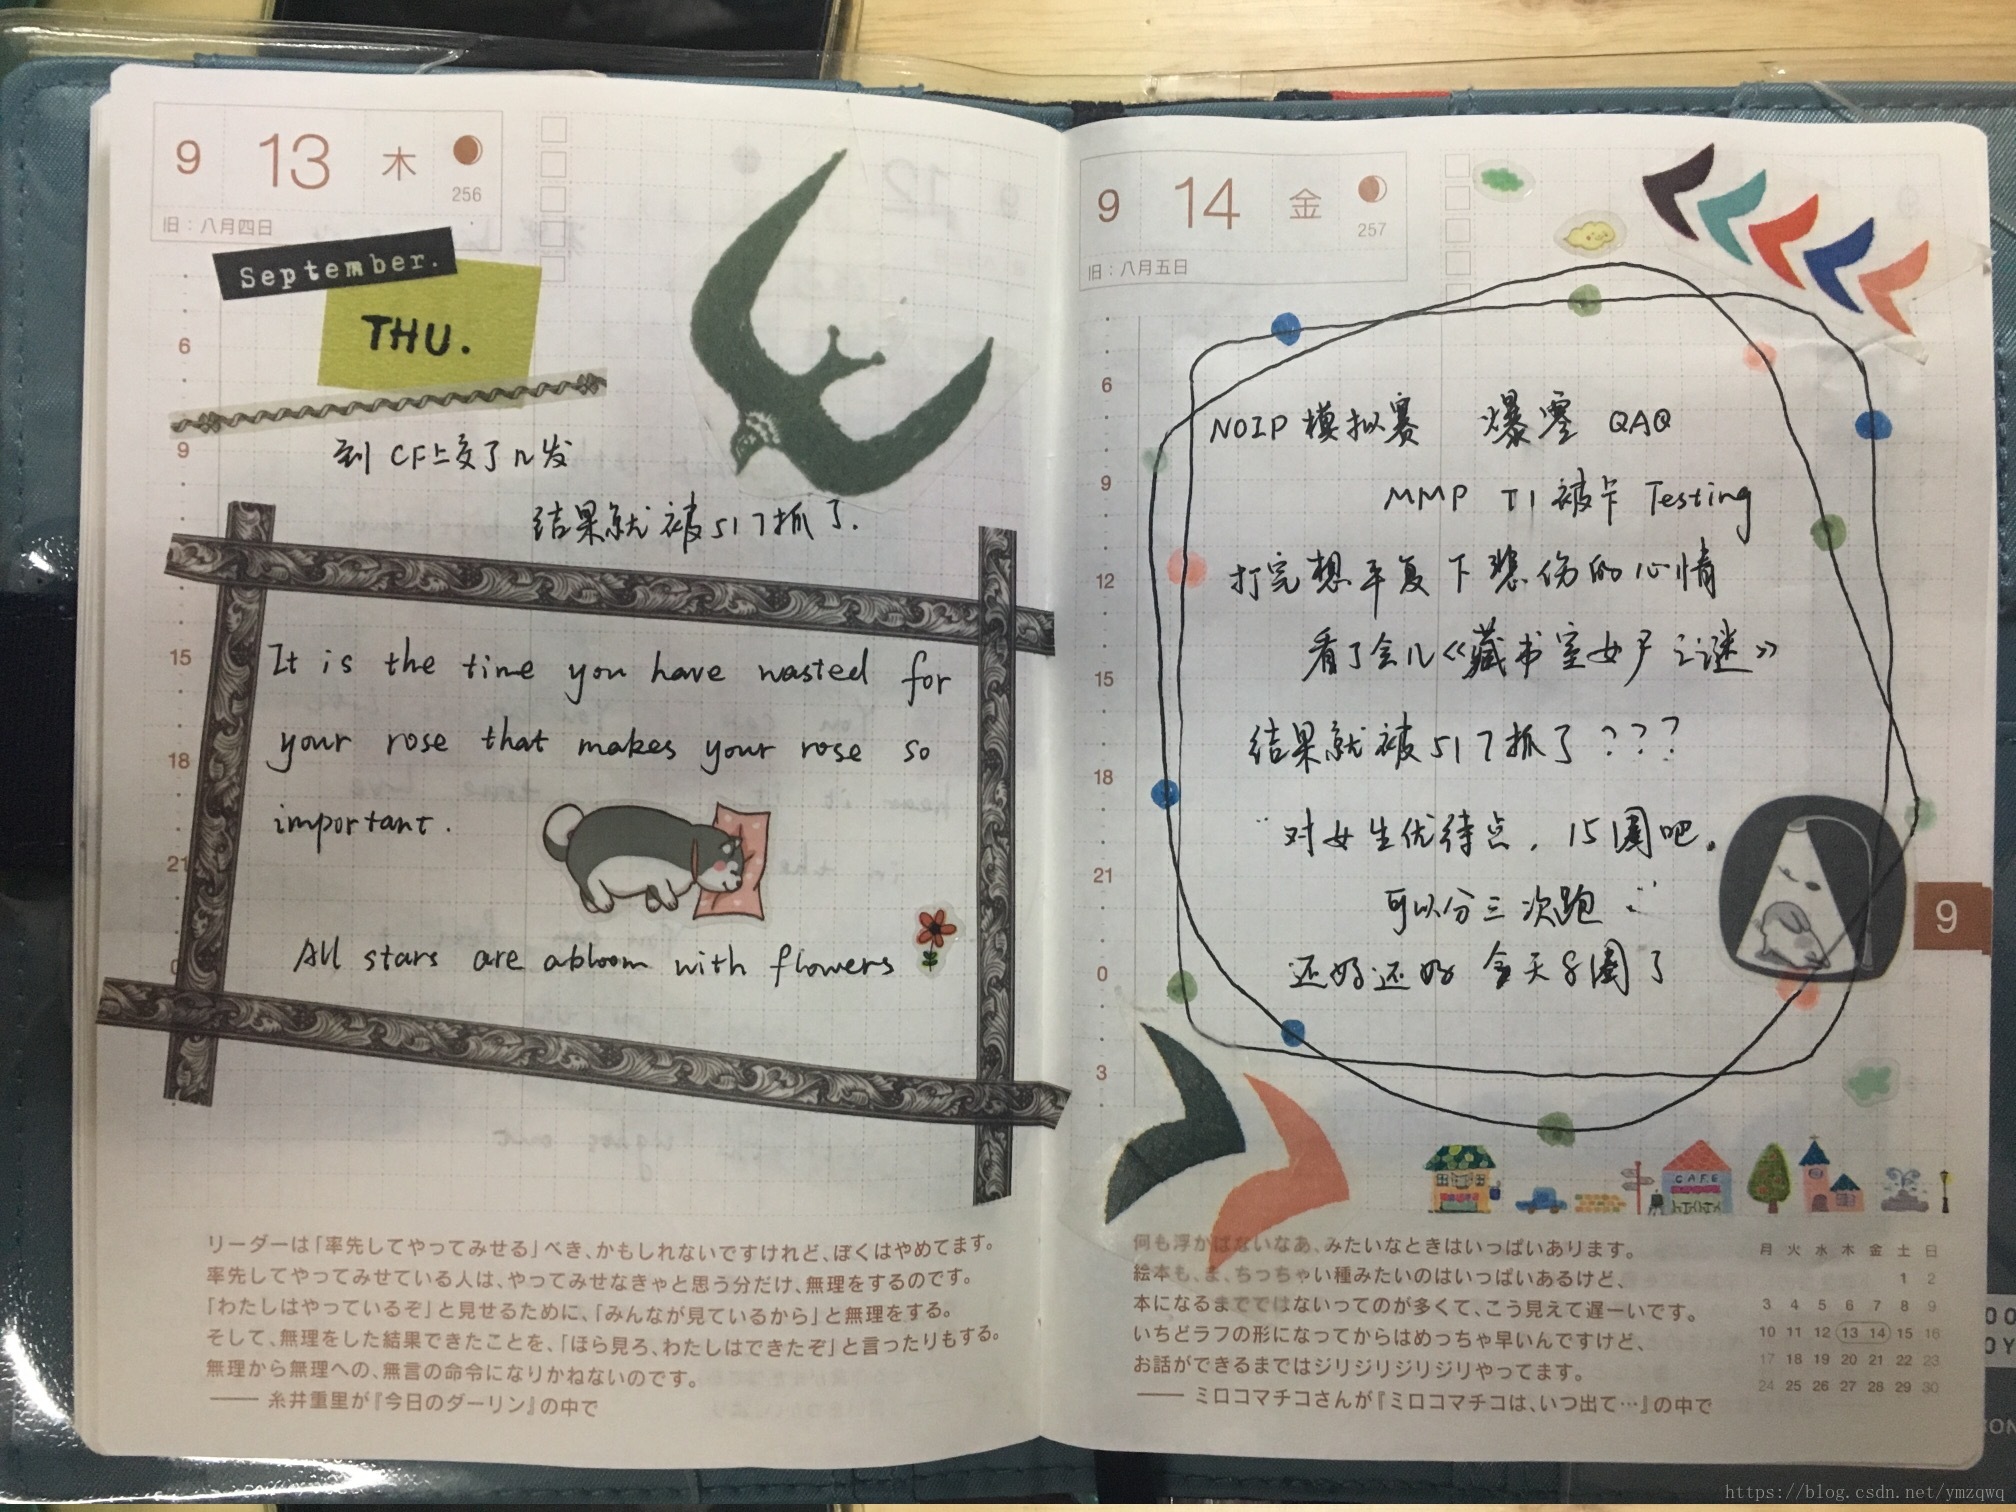 9 13 木
256
旧：八月四日
September.
THU.
6
9
到CF上交了几发
结果就被517抓了.
15
It is the time you have wasted for
your rose that makes your rose so
18
important.
21
All stars are abloom with flowers
リーダーは「率先してやってみせる」べき、かもしれないですけれど、ぼくはやめてます。
率先してやってみせている人は、やってみせなきゃと思う分だけ、無理をするのです。
「わたしはやっているぞ」と見せるために、「みんなが見ているから」と無理をする。
そして、無理をした結果できたことを、「ほら見ろ、わたしはできたぞ」と言ったりもする。
無理から無理への、無言の命令になりかねないのです。
—— 糸井重里が『今日のダーリン』の中で
9 14 金
257
旧：八月五日
6
NOIP模拟赛 爆零 QAQ
9
MMP T1被卡 Testing
12
打完想平复下悲伤的心情
看了会儿《藏书室女尸之谜》
15
结果就被517抓了???
18
"对女生优待点，15圈吧.
21
可以分三次跑"
0
还好还好 今天8圈了
3
9
CAFE
何も浮かばないなあ、みたいなときはいっぱいあります。
絵本も、ま、ちっちゃい種みたいのはいっぱいあるけど、
本になるまでではないってのが多くて、こう見えて遅ーいです。
いちどラフの形になってからはめっちゃ早いんですけど、
お話ができるまではジリジリジリジリやってます。
—— ミロコマチコさんが『ミロコマチコは、いつ出て…』の中で
月 火 水 木 金 土 日
1 2
3 4 5 6 7 8 9
10 11 12 13 14 15 16
17 18 19 20 21 22 23
24 25 26 27 28 29 30
https://blog.csdn.net/ymzqwq